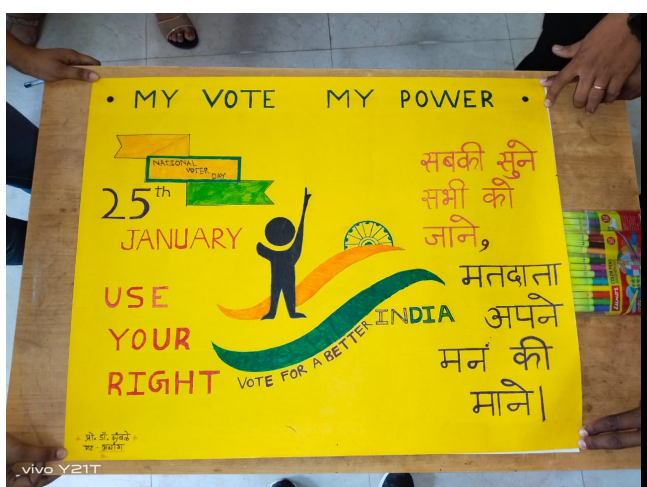 • MY VOTE MY POWER •
NATIONAL
VOTER
DAY
25th
JANUARY
USE
YOUR
RIGHT
VOTE FOR A BETTER INDIA
सबकी सुने
सभी को
जाने,
मतदाता
अपने
मनं की
माने|
प्रो. डॉ.
vivo Y21T